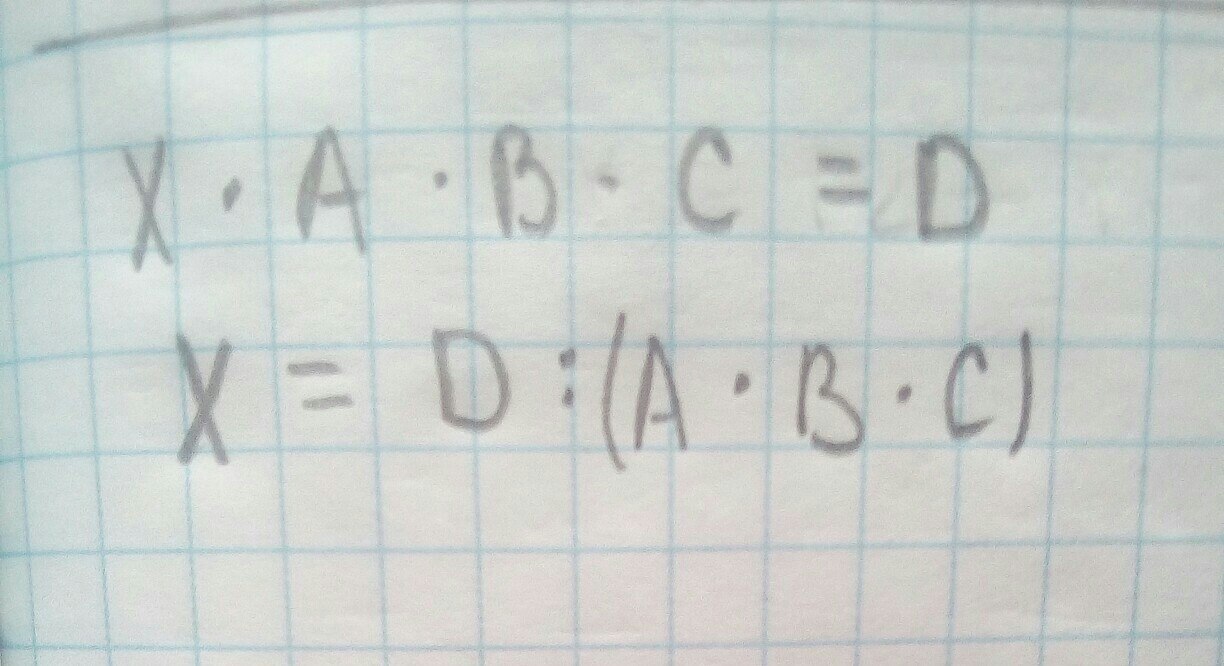 X · A · B · C = D
X = D : (A · B · C)